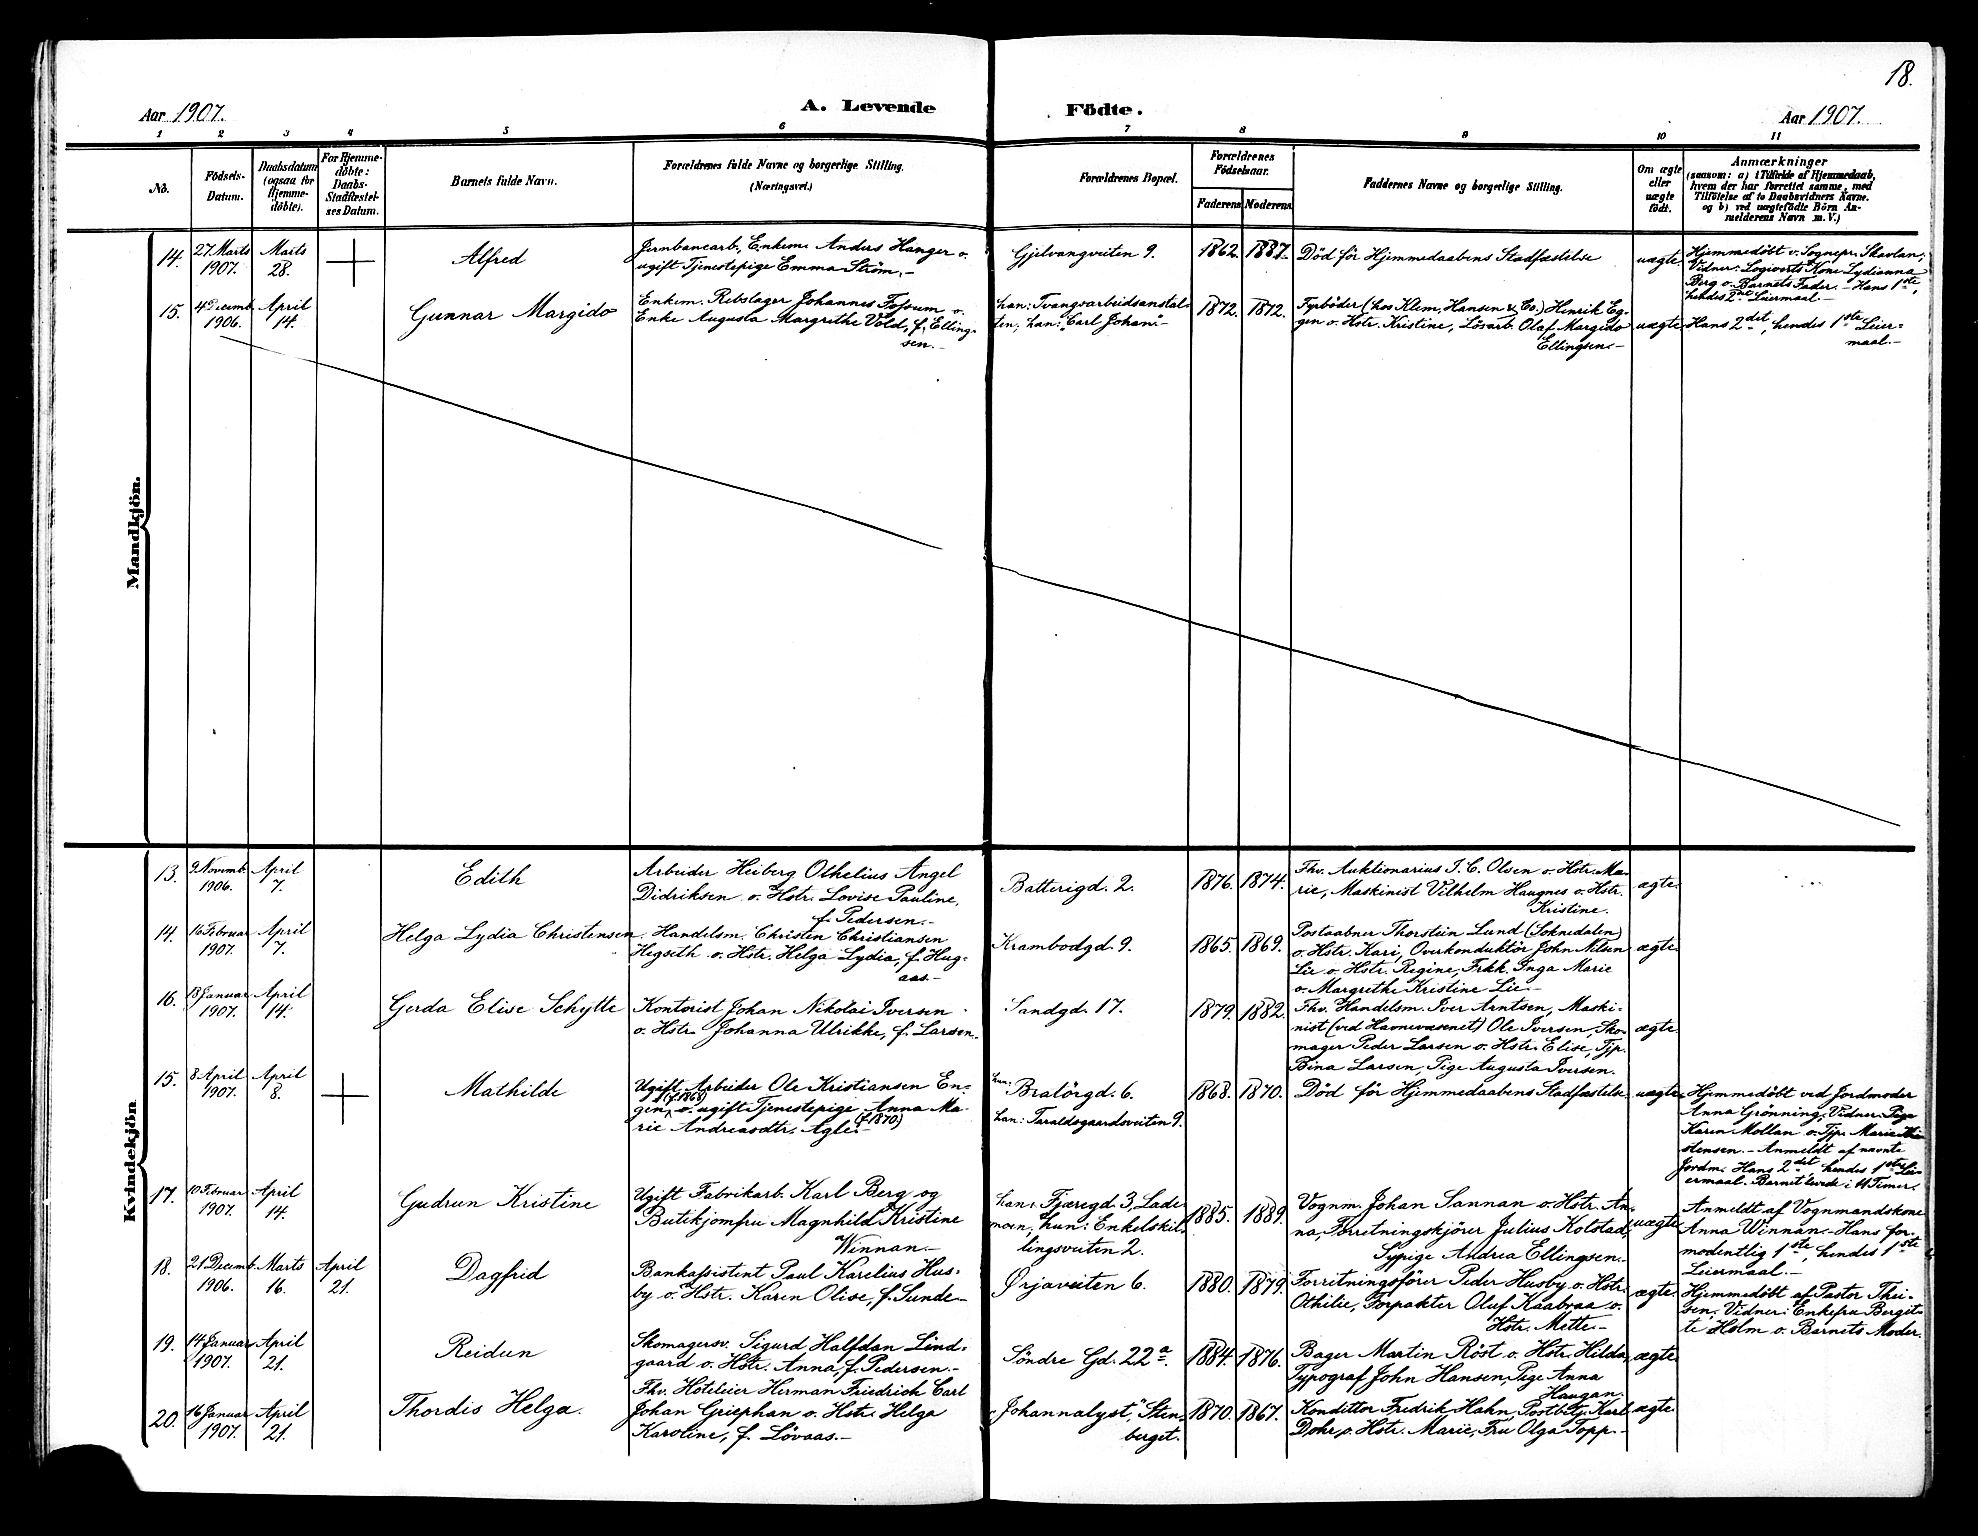 18.
Aar 1907.
A. Levende Födte.
Aar 1907.
1 2 3 4 5 6 7 8 9 10 11
No.
Födsels-
Datum.
Daabsdatum
(ogsaa for
Hjemme-
döbte).
For Hjemme-
döbte:
Daabs-
Stadfæstel-
ses Datum.
Barnets fulde Navn.
Forældrenes fulde Navne og borgerlige Stilling.
(Næringsvei.)
Forældrenes Bopæl.
Forældrenes
Födselsaar.
Faderens Moderens
Faddernes Navne og borgerlige Stilling.
Om ægte
eller
uægte
födt.
Anmærkninger
(saasom: a) i Tilfælde af Hjemmedaab,
hvem der har forrettet samme, med
Tilföielse af to Daabsvidners Navne.
og b) ved uægtefödte Börn An-
melderens Navn m. V.)
Mandkjön.
14.
27 Marts
1907.
Marts
28.
Alfred
Jernbanearb. Enkem. Anders Hanger o.
ugift Tjenestepige Emma Ström.-
Gjelvangveiten 9.
1862. 1887.
Död för Hjemmedaabens Stadfæstelse
uægte.
Hjemmedöbt v. Sognepr. Skavlan;
Vidner: Logiverts Kone Lydianna
Berg o. Barnets Fader. - Hans 1ste,
hendes 2net Leiermaal.-
15.
4 Decemb.
1906.
April
14.
Gunnar Margido
Enkem. Rebslager Johannes Fossum o.
Enke Augusta Margrethe Vold, f. Elling-
sen.-
han: Tvangsarbeidsanstal-
ten, hun: Carl Johans-
1872. 1872.
Fyrböder (hos Klem, Hansen & Co.) Henrik Eg-
gen o. Hstr. Kristine, Lösarb. Olaf Margido
Ellingsen.-
uægte
Hans 2det, hendes 1ste Leier-
maal.-
Kvindekjön
13.
9 Novemb.
1906.
April
7.
Edith
Arbeider Heiberg Othelius Angel
Didriksen o. Hstr. Lovise Pauline,
f. Pedersen.-
Batterigd. 2.
1876. 1874.
Fhv. Auktionarius J. C. Olsen o. Hstr. Ma-
rie, Maskinist Vilhelm Haugnes o. Hstr.
Kristine.
ægte.
14.
16 Februar
1907.
April
7.
Helga Lydia Christensen
Handelsm. Christen Christiansen
Hegseth o. Hstr. Helga Lydia, f. Hug-
aas-
Krambodgd. 9.
1865. 1869.
Postaabner Thorstein Lund (Soknedalen)
o. Hstr. Kari, Overkonduktör John Nilsen
Lie o. Hstr. Regine, Frkk. Inga Marie
o. Margrethe Kristine Lie.-
ægte.
16.
18 Januar
1907.
April
14.
Gerda Elise Schytte
Kontorist Johan Nikolai Iversen
o. Hstr. Johanna Ulrikke, f. Larsen.
Sandgd. 17.
1879. 1882.
Fhv. Handelsm. Iver Arntsen, Maski-
nist (ved Havnevæsenet) Ole Iversen, Sko-
mager Peder Larsen o. Hstr. Elise, Tjp.
Bina Larsen, Pige Augusta Iversen.
ægte.
15.
8 April
1907.
April
8.
Mathilde
Ugift Arbeider Ole Kristiansen En-
gen (f. 1868) o. ugift Tjenestepige Anna Ma-
rie Andreasdtr. Agle.- (f. 1870)
hun: Bralörgd. 6.
han: Taraldsgaardsveiten 9.
1868. 1870.
Död för Hjemmedaabens Stadfæstelse
uægte
Hjemmedöbt ved Jordmoder
Anna Grönning, Vidner: Pige
Karen Mollan o. Tjp. Marie Kri-
stensen. - Anmeldt af nævnte
Jordm. Hans 2det, hendes 1ste Lei-
ermaal. Barnet levede i 11 Timer.
17.
10 Februar
1907.
April
14.
Gudrun Kristine
Ugift Fabrikarb. Karl Berg og
Butikjomfru Magnhild Kristine
Winnan.-
han: Fjæregd. 3, Lade-
moen, hun: Enkelskil-
lingsveiten 2.
1885. 1889.
Vognm. Johan Sannan o. Hstr. An-
na, Forretningskjörer Julius Kolstad,
Sypige Andrea Ellingsen.
uægte
Anmeldt af Vognmandskone
Anna Winnan.- Hans for-
modentlig 1ste, hendes 1ste
Leiermaal.-
18.
21 Decemb.
1906.
Marts
16.
April
21.
Dagfrid
Bankassistent Paul Karelius Hus-
by o. Hstr. Karen Olise, f. Sunde-
Ørjaveiten 6.
1880. 1879.
Forretningsförer Peder Husby o. Hstr.
Othilie, Forpakter Oluf Kaabraa o.
Hstr. Mette.-
ægte.
Hjemmedöbt af Pastor Thei-
sen. Vidner: Enkefru Bergit-
te Holm o. Barnets Moder.
19.
14 Januar
1907.
April
21.
Reidun
Skomagersv. Sigurd Halfdan Lind-
gaard o. Hstr. Anna, f. Pedersen.-
Söndre Gd. 22a.
1884. 1876.
Bager Martin Röst o. Hstr. Hilda,
Typograf John Hansen, Pige Anna
Haugan.
ægte.
20.
16 Januar
1907.
April
21.
Thordis Helga.
Fhv. Hoteleier Herman Friedrich Carl
Johan Griephan o. Hstr. Helga
Karoline, f. Lövaas.-
"Johannalyst," Sten-
berget.
1870. 1867.
Konditor Fredrik Hahn, Postbetj. Karl
Dohr o. Hstr. Marie, Fru Olga Topp.-
ægte